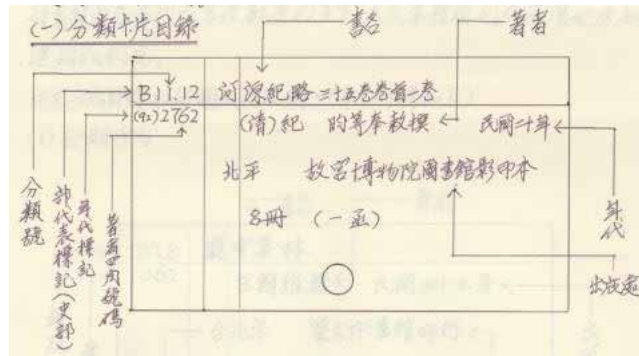 (一)分類卡片目錄
書名
著者
B11.12
河源紀略三十五卷卷首一卷
(92)2762
(清)紀 昀等奉敕撰 民國二十年
北平 故宮博物院圖書館影印本
8冊 (一函)
分類號
部代表標記(史部)
年代標記
著者四角號碼
年代
出版處